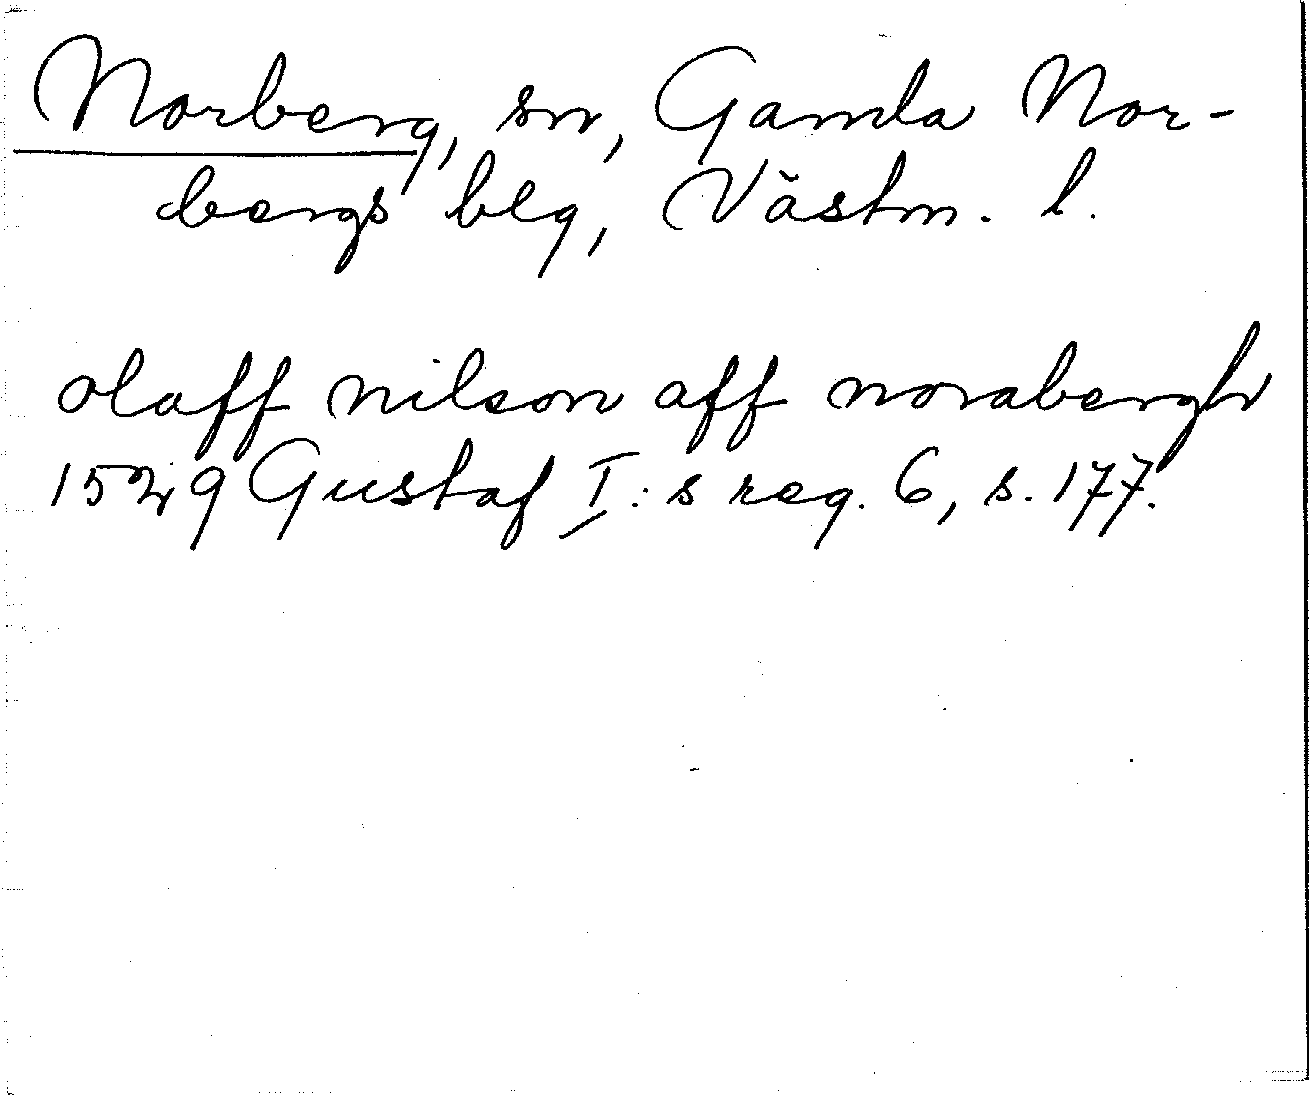 Norberg, sn, Gamla Nor-
bergs blg, Västm. l.
olaff nilson aff norabergh
1529 Gustaf I:s reg. 6, s. 177.